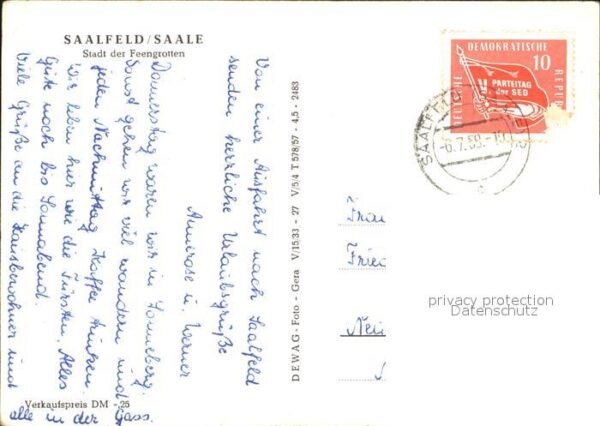 SAALFELD/SAALE
Stadt der Feengrotten
Von einer Ausfahrt nach Saalfeld
senden herzliche Urlaubsgrüße
Annerose u. Werner
Donnerstag waren wir in Sonneberg.
Sonst gehen wir viel wandern und
jeden Nachmittag Kaffee trinken.
Wir leben hier wie die Fürsten. Alles
Gute noch bis Sonnabend.
Viele Grüße an die Hausbewohner und
alle in der Gass.
Verkaufspreis DM -.25
DEWAG-Foto - Gera V/15/33 - 27 V/5/4 T 578/57 - 4,5 - 2483
DEUTSCHE DEMOKRATISCHE REPUBLIK
10
V. PARTEITAG
der SED
SAALFELD
-6.7.59.-
c
Frau
Frie
Nei
privacy protection
Datenschutz